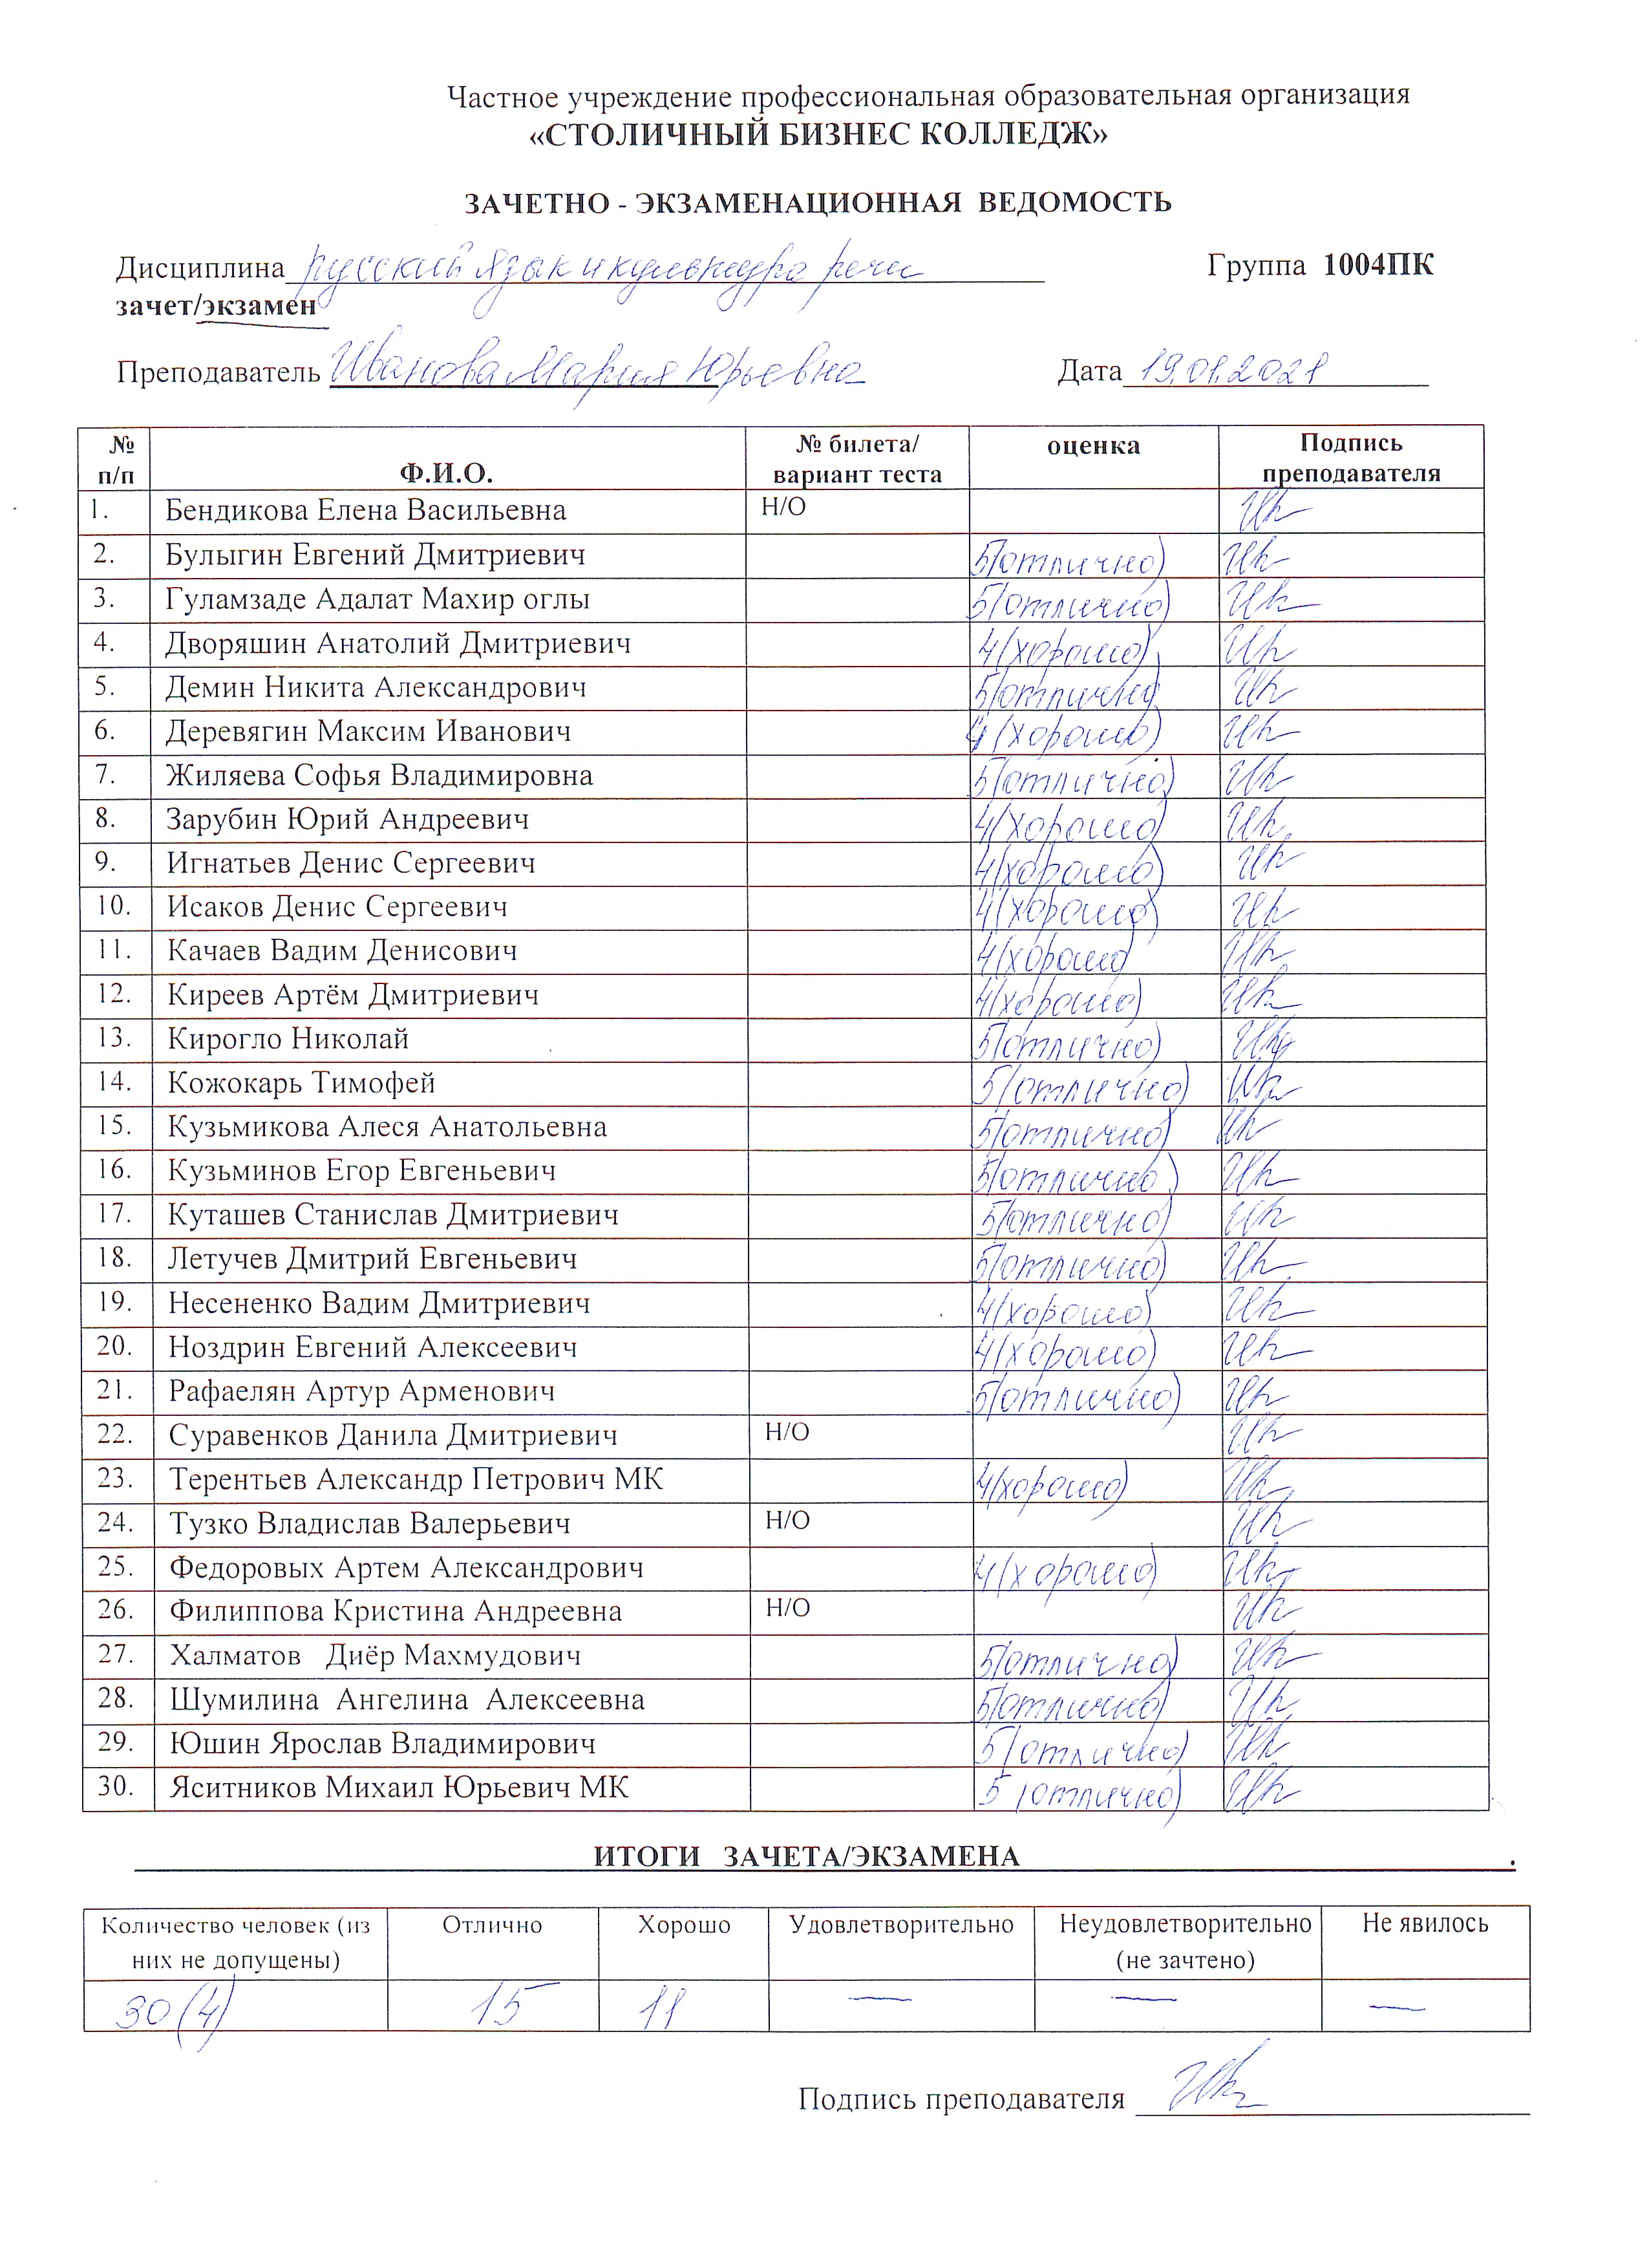 Частное учреждение профессиональная образовательная организация
«СТОЛИЧНЫЙ БИЗНЕС КОЛЛЕДЖ»
ЗАЧЕТНО - ЭКЗАМЕНАЦИОННАЯ ВЕДОМОСТЬ
Дисциплина русский язык и культура речи Группа 1004ПК
зачет/экзамен
Преподаватель Иванова Мария Юрьевна Дата 19.01.2021
№ п/п Ф.И.О. № билета/ вариант теста оценка Подпись преподавателя
1. Бендикова Елена Васильевна Н/О
2. Булыгин Евгений Дмитриевич 5(отлично)
3. Гуламзаде Адалат Махир оглы 5(отлично)
4. Дворяшин Анатолий Дмитриевич 4(хорошо)
5. Демин Никита Александрович 5(отлично)
6. Деревягин Максим Иванович 4(хорошо)
7. Жиляева Софья Владимировна 5(отлично)
8. Зарубин Юрий Андреевич 4(хорошо)
9. Игнатьев Денис Сергеевич 4(хорошо)
10. Исаков Денис Сергеевич 4(хорошо)
11. Качаев Вадим Денисович 4(хорошо)
12. Киреев Артём Дмитриевич 4(хорошо)
13. Кирогло Николай 5(отлично)
14. Кожокарь Тимофей 5(отлично)
15. Кузьмикова Алеся Анатольевна 5(отлично)
16. Кузьминов Егор Евгеньевич 5(отлично)
17. Куташев Станислав Дмитриевич 5(отлично)
18. Летучев Дмитрий Евгеньевич 5(отлично)
19. Несененко Вадим Дмитриевич 4(хорошо)
20. Ноздрин Евгений Алексеевич 4(хорошо)
21. Рафаелян Артур Арменович 5(отлично)
22. Суравенков Данила Дмитриевич Н/О
23. Терентьев Александр Петрович МК 4(хорошо)
24. Тузко Владислав Валерьевич Н/О
25. Федоровых Артем Александрович 4(хорошо)
26. Филиппова Кристина Андреевна Н/О
27. Халматов Диёр Махмудович 5(отлично)
28. Шумилина Ангелина Алексеевна 5(отлично)
29. Юшин Ярослав Владимирович 5(отлично)
30. Яситников Михаил Юрьевич МК 5(отлично)
ИТОГИ ЗАЧЕТА/ЭКЗАМЕНА .
Количество человек (из Отлично Хорошо Удовлетворительно Неудовлетворительно Не явилось
них не допущены) (не зачтено)
30(4) 15 11 — — —
Подпись преподавателя